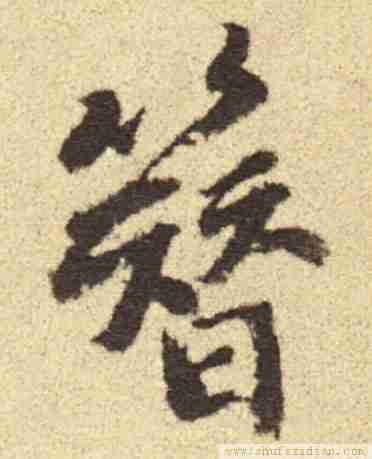 簪
www.shufazidian.com